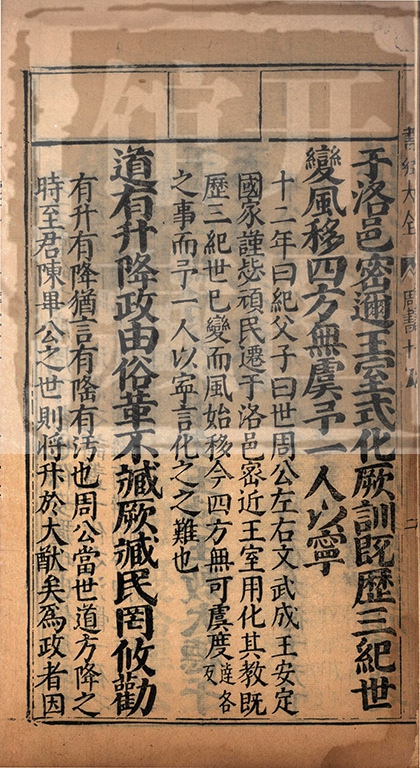 于洛邑密邇王室式化厥訓既歷三紀世
變風移四方無虞予一人以寧
十二年曰紀父子曰世周公左右文武成王安定
國家謹毖頑民遷于洛邑密近王室用化其教既
歷三紀世已變而風始移今四方無可虞度達各反
之事而予一人以寧言化之之難也
道有升降政由俗革不臧厥臧民罔攸勸
有升有降猶言有隆有汚也周公當世道方降之
時至君陳畢公之世則將升於大猷矣爲政者因